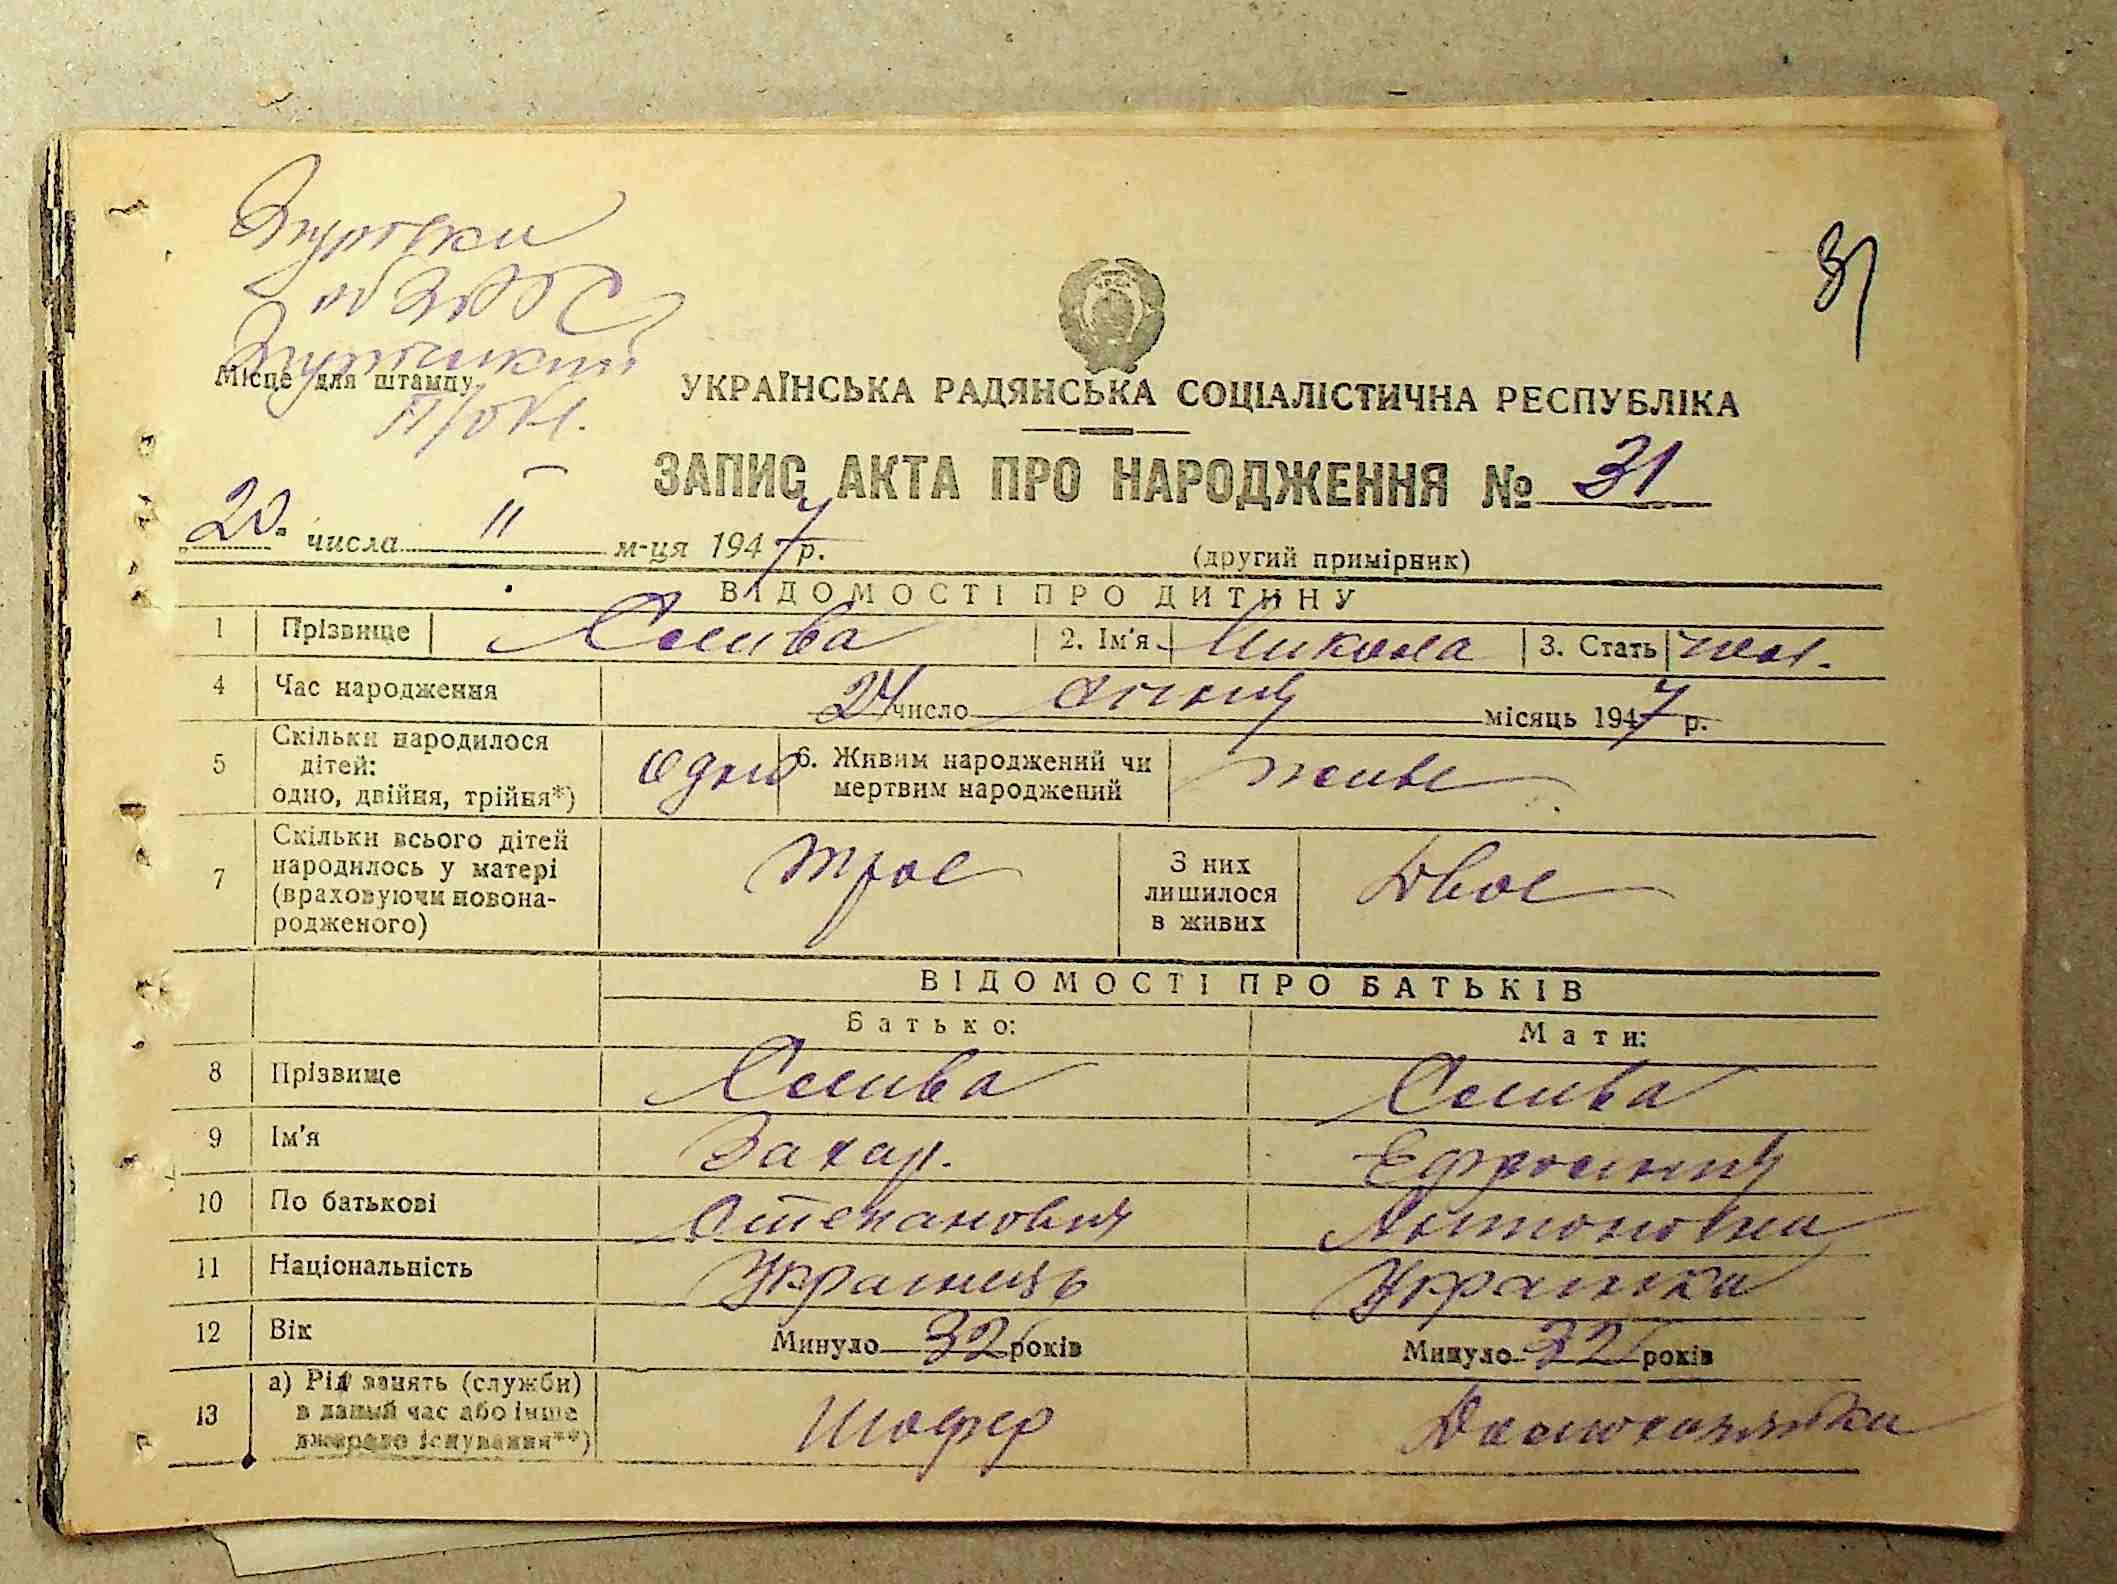 31
УКРАЇНСЬКА РАДЯНСЬКА СОЦІАЛІСТИЧНА РЕСПУБЛІКА
Місце для штампу
ЗАПИС АКТА ПРО НАРОДЖЕННЯ № 31
20 числа II м-ця 1947 р.
(другий примірник)
ВІДОМОСТІ ПРО ДИТИНУ
1 Прізвище Слива 2. Ім'я Микола 3. Стать чол.
4 Час народження 24 число місяць 1947 р.
5 Скільки народилося дітей: одно, двійня, трійня*) одно 6. Живим народжений чи мертвим народжений живе
7 Скільки всього дітей народилось у матері (враховуючи новонародженого) троє З них лишилося в живих двоє
ВІДОМОСТІ ПРО БАТЬКІВ
Батько: Мати:
8 Прізвище Слива Слива
9 Ім'я Захар. Ефросинія
10 По батькові Степанович Антоновна
11 Національність Українець Українка
12 Вік Минуло 32 років Минуло 32 років
13 а) Рід занять (служби) в даный час або інше джерело існування**) Шофер Домохазяйка